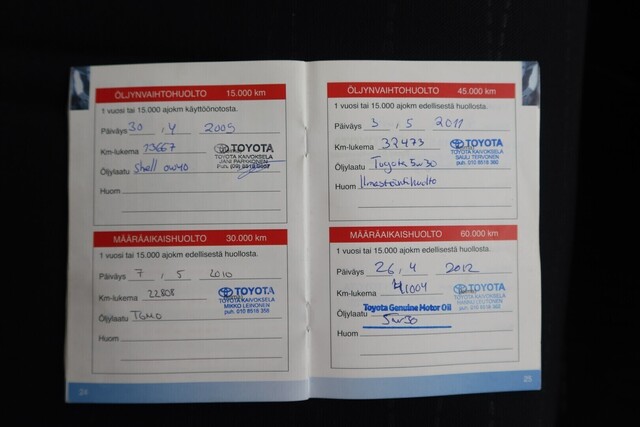 ÖLJYNVAIHTOHUOLTO 15.000 km
1 vuosi tai 15.000 ajokm käyttöönotosta.
Päiväys 30 , 4 2009
Km-lukema 13667
TOYOTA
TOYOTA KAIVOKSELA
Öljylaatu Shell 0W40
Huom
MÄÄRÄAIKAISHUOLTO 30.000 km
1 vuosi tai 15.000 ajokm edellisestä huollosta.
Päiväys 7 , 5 2010
Km-lukema 22808
TOYOTA
TOYOTA KAIVOKSELA
MIKKO LEINONEN
puh. 010 8518 358
Öljylaatu TGMO
Huom
24
ÖLJYNVAIHTOHUOLTO 45.000 km
1 vuosi tai 15.000 ajokm edellisestä huollosta.
Päiväys 3 , 5 2011
Km-lukema 32473
TOYOTA
TOYOTA KAIVOKSELA
SAULI TERVONEN
puh. 010 8518 360
Öljylaatu Toyota 5w30
Huom Ilmastointihuolto
MÄÄRÄAIKAISHUOLTO 60.000 km
1 vuosi tai 15.000 ajokm edellisestä huollosta.
Päiväys 26 , 4 2012
Km-lukema 41004
TOYOTA
TOYOTA KAIVOKSELA
Toyota Genuine Motor Oil
Öljylaatu 5w30
Huom
25